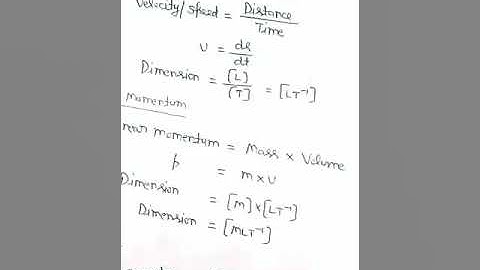 Velocity/speed = Distance / Time
v = ds/dt
Dimension = [L]/[T] = [LT⁻¹]
momentum
near momentum = Mass × Volume
p = m×v
Dimension = [M]×[LT⁻¹]
Dimension = [MLT⁻¹]